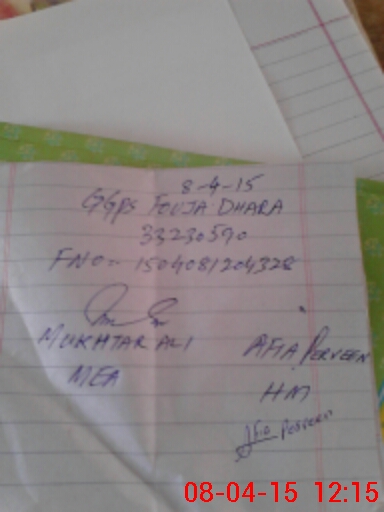 8-4-15
GGPS FOUJA DHARA
33230590
FNO:- 1504081204328
MUKHTAR ALI
MEA
AFIA PERVEEN
HM
Afia Perveen
08-04-15 12:15